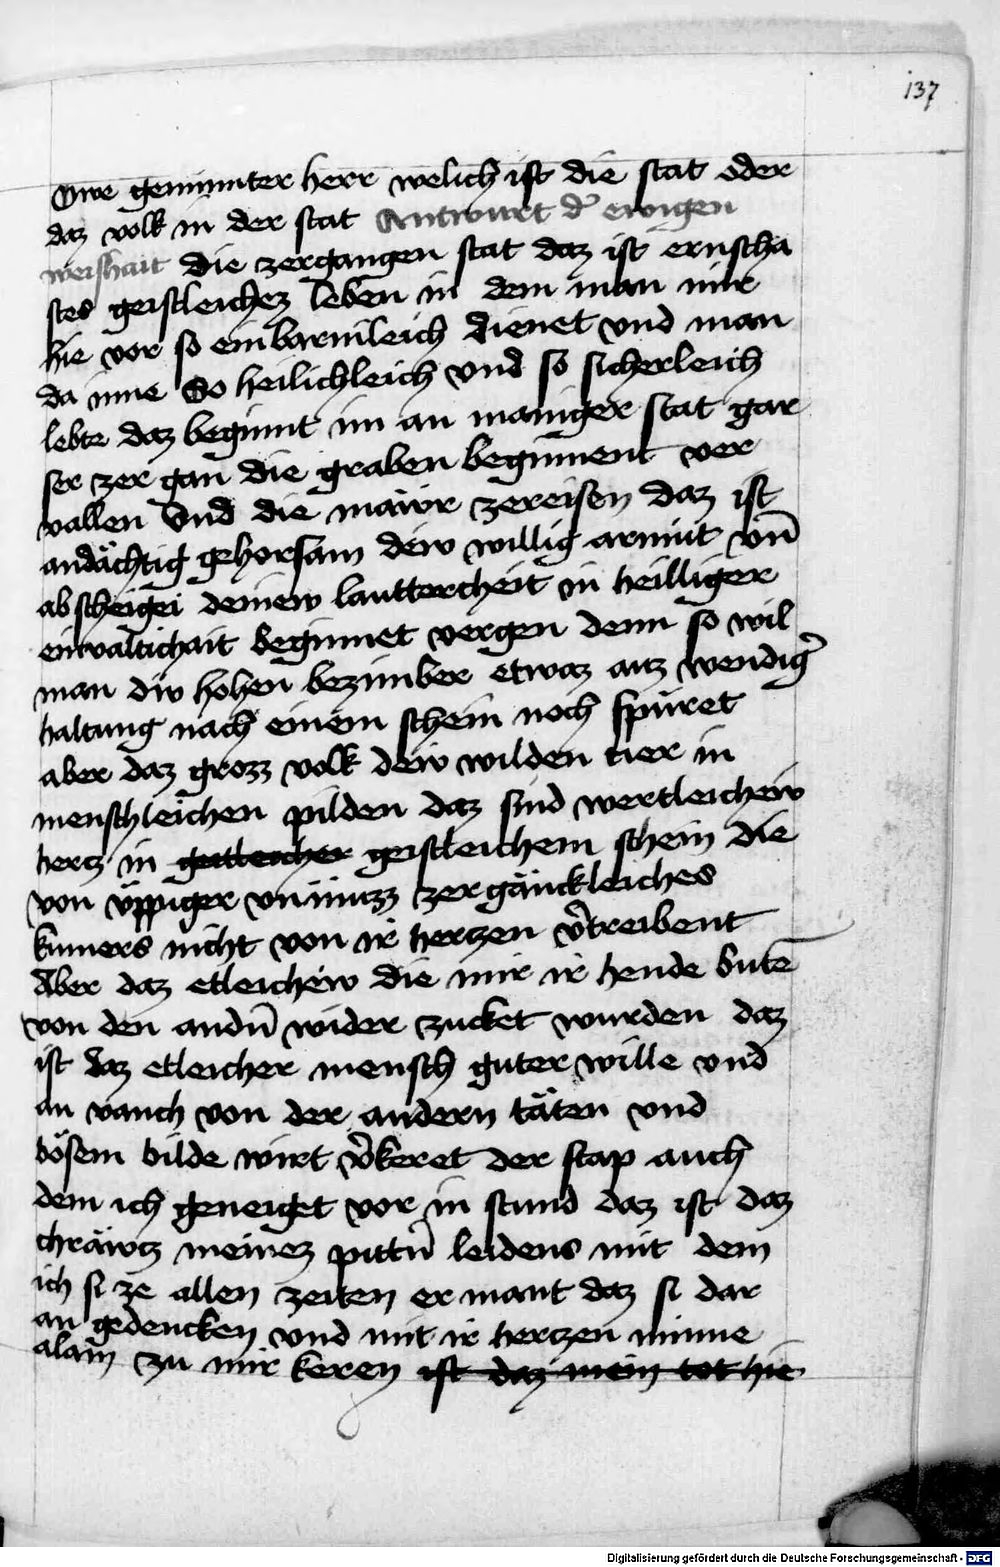 137
Owe geminnter herr welich ist die stat oder
daz volk in der stat Antwurt d̕ ewigen
weishait Die zergangen stat daz ist ernscha
ftes geistleichez leben in dem man mir
hie vor so einbarmleich dienet vnd man
da inne So heilichleich vnd so sicherleich
lebte daz beginnt im an maniger stat gar
ser zer gan die graben beginnent ver
vallen Vnd die mawr zereisen daz ist
andächtig gehorsam dew willig armüt vn̄
ab scheigei deinew lauttercheit in heilliger
einvaltichait beginnet vergen denn so wil
man div hohen bezimber etwaz auz wendig̕
haltung nach einem schein noch spüret
aber daz grozz volk dew wilden tier in
menschleichen pilden daz sind wertleichew
hertz in geitleicher geistleichem schein die
von üppiger vnnüczz zergänckleiches
kumers nicht von ir herczen v̕treibent
Aber daz etleichew die mir ir hende buten
von den andn̄ wider zucket wurden daz
ist daz etleicher mensch guter wille vnd
an vanch von der andern täten vnd
bösem bilde wirt v̕keret der stap auch
dem ich geneiget vor in stund daz ist daz
chräwcz meinez pittn̄ leidens mit dem
ich si ze allen zeiten er mant daz si dar
an gedencken vnd mit ir herczen minne
alain zu mir keren ist daz mein tot hie
Digitalisierung gefördert durch die Deutsche Forschungsgemeinschaft - DFG